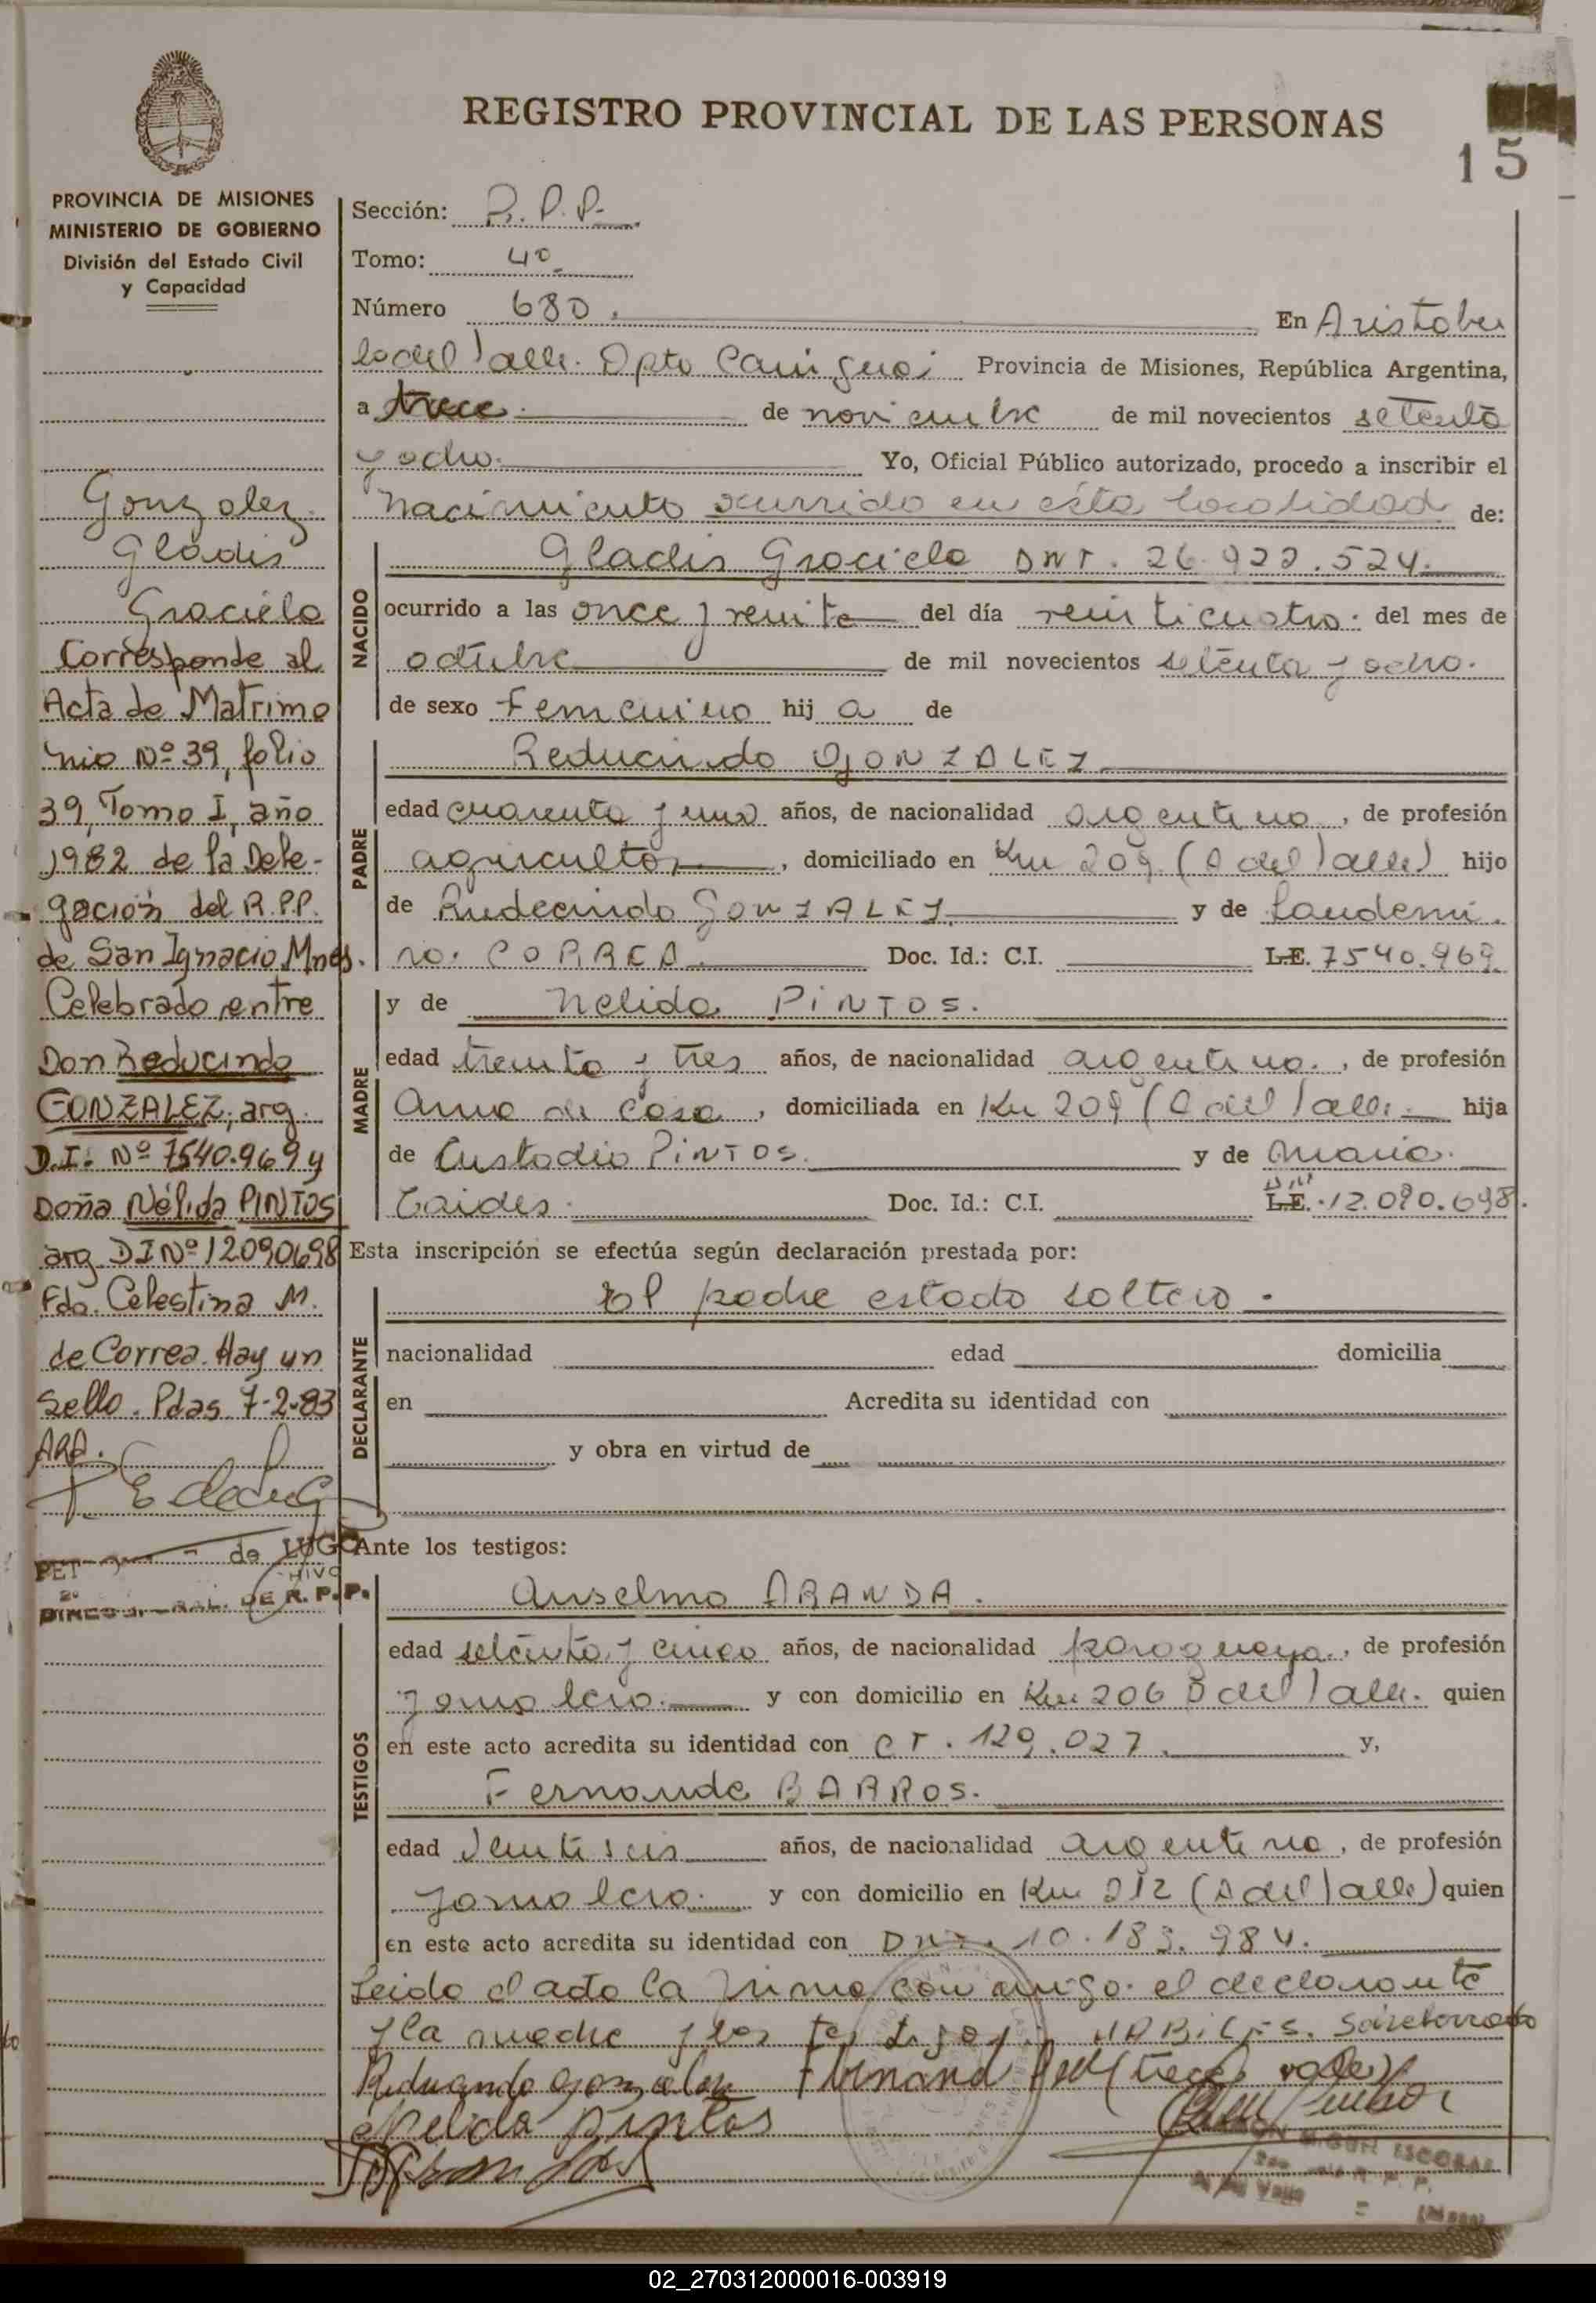 REGISTRO PROVINCIAL DE LAS PERSONAS
15
PROVINCIA DE MISIONES
MINISTERIO DE GOBIERNO
División del Estado Civil
y Capacidad
Gonzalez
Gladis
Graciela
Corresponde al
Acta de Matrimo
nio Nº 39, folio
39, Tomo I, año
1982 de la Dele-
gación del R.P.P.
de San Ignacio, Mnes.
Celebrado entre
Don Reducindo
GONZALEZ, arg.
D.I. Nº 7540.969 y
Doña Nélida PINTOS
arg. DI Nº 12090698
Fdo. Celestina M.
de Correa. Hay un
Sello. Pdas. 7-2-83
de LUGO
DE R. P. P.
Sección: R. P. P.
Tomo: 4º
Número 680. En Aristobu
lo del Valle. Dpto Cainguas Provincia de Misiones, República Argentina,
a trece de noviembre de mil novecientos setenta
y ocho. Yo, Oficial Público autorizado, procedo a inscribir el
nacimiento ocurrido en esta localidad de:
NACIDO
Gladis Graciela DNI. 26.922.524.
ocurrido a las once y veinte del día veinticuatro. del mes de
octubre de mil novecientos setenta y ocho.
de sexo Femenino hij a de
PADRE
Reducindo GONZALEZ
edad cuarenta y uno años, de nacionalidad argentino, de profesión
agricultor, domiciliado en Km 209 (A del Valle) hijo
de Rudecindo GONZALEZ y de Laudemi.
ra. CORREA. Doc. Id.: C.I. L.E. 7540.969.
MADRE
y de Nelida PINTOS.
edad treinta y tres años, de nacionalidad argentina., de profesión
Ama de Casa, domiciliada en Km 209 (A del Valle. hija
de Custodio PINTOS. y de Maria.
Caides. Doc. Id.: C.I. L.E. 12.090.698.
Esta inscripción se efectúa según declaración prestada por:
DECLARANTE
El padre estado soltero.
nacionalidad edad domicilia
en Acredita su identidad con
y obra en virtud de
Ante los testigos:
TESTIGOS
Anselmo ARANDA.
edad setenta y cinco años, de nacionalidad paraguaya., de profesión
jornalero. y con domicilio en Km 206 A del Valle. quien
en este acto acredita su identidad con CI. 129.027. y,
Fernando BARROS.
edad Veintiseis años, de nacionalidad argentino, de profesión
jornalero. y con domicilio en Km 212 (A del Valle) quien
en este acto acredita su identidad con DNI. 10.183.984.
Leida el acta la firma con migo. el declarante
y la madre y los testigos. HABILES. Sobreborrado
Reducindo Gonzalez Fernand (trece) vale
Nelida Pintos
RAMON ESCOBAR
02_270312000016-003919